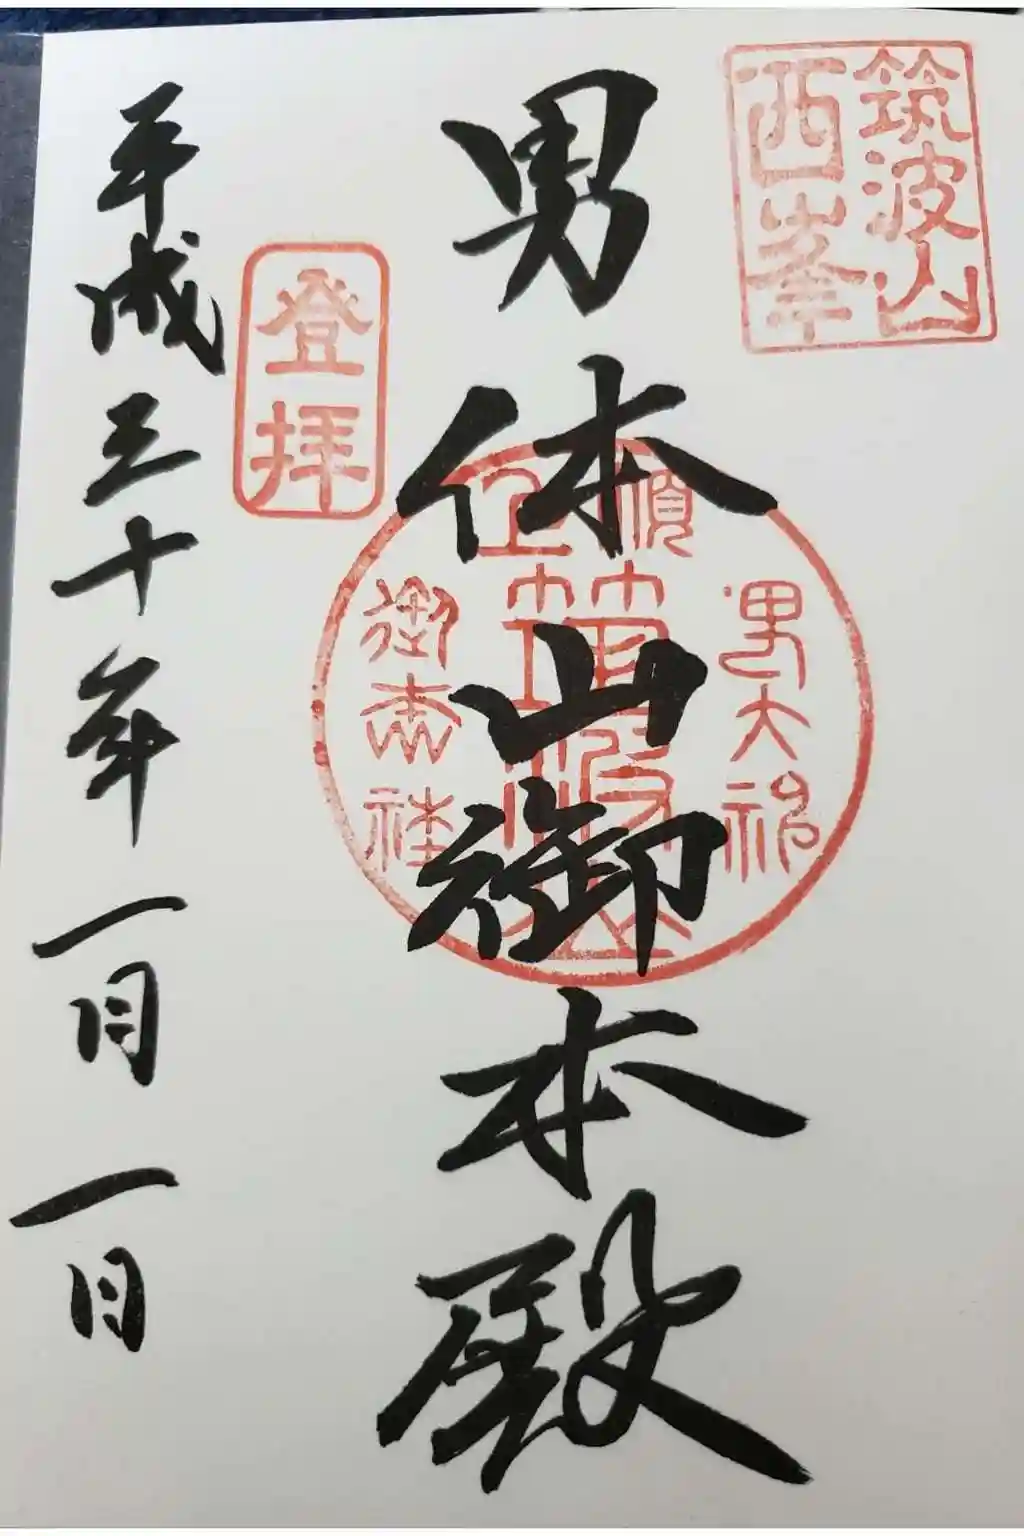 筑波山
西峯
男体山御本殿
登拝
平成三十年一月一日